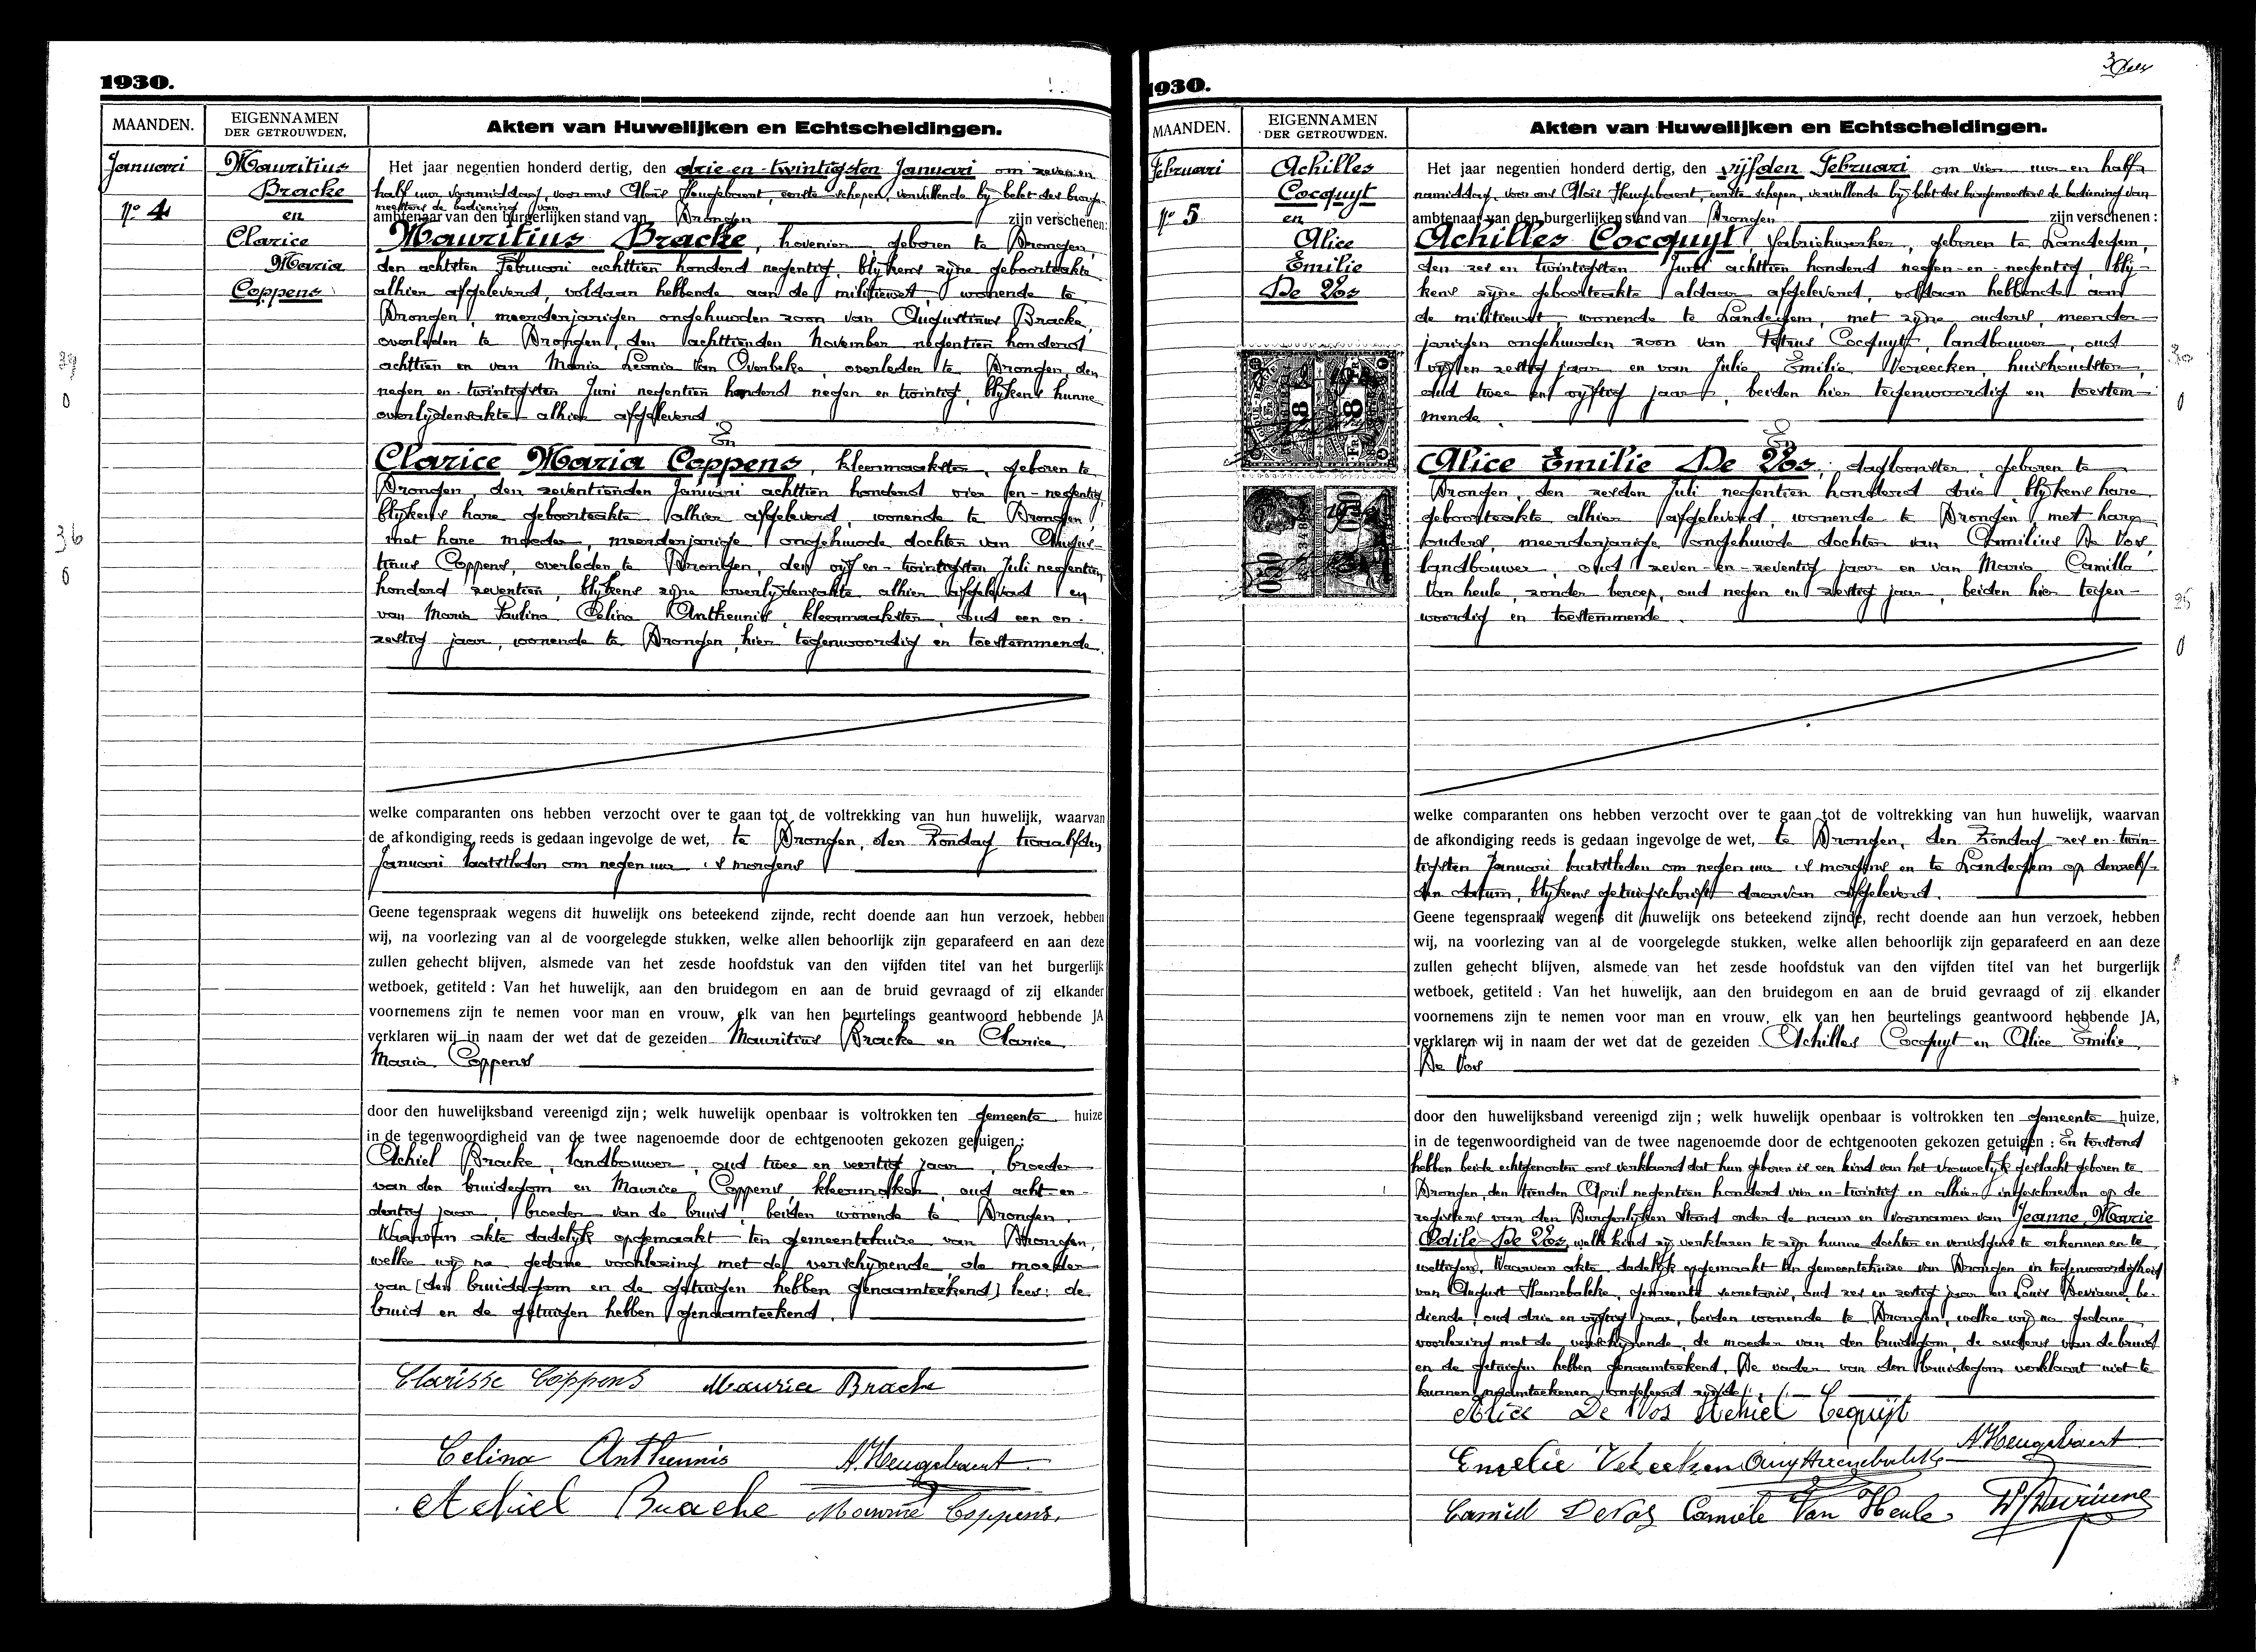 1930.
MAANDEN.
EIGENNAMEN
DER GETROUWDEN.
Akten van Huwelijken en Echtscheidingen.
Januari
No 4
Mauritius
Bracke
en
Clarice
Maria
Coppens
Het jaar negentien honderd dertig, den drie en twintigsten Januari om zeven en
half uur voormiddag, voor ons Aloïs Heugebaert, eerste schepen, vervullende bij belet des burge-
meesters de bediening van
ambtenaar van den burgerlijken stand van Drongen zijn verschenen:
Mauritius Bracke, hovenier, geboren te Drongen,
den achtsten Februari achttien honderd negentig, blijkens zijne geboorteakte
alhier afgeleverd, voldaan hebbende aan de militiewet, wonende te
Drongen, meerderjarigen ongehuwden zoon van Augustinus Bracke,
overleden te Drongen, den achttienden November negentien honderd
achttien en van Maria Leonia Van Overbeke, overleden te Drongen, den
negen en twintigsten Juni negentien honderd negen en twintig, blijkens hunne
overlijdensakten alhier afgeleverd.
En
Clarice Maria Coppens, kleermaakster, geboren te
Drongen den zeventienden Januari achttien honderd vier en negentig,
blijkens hare geboorteakte alhier afgeleverd, wonende te Drongen,
met hare moeder, meerderjarige ongehuwde dochter van Augus-
tinus Coppens, overleden te Drongen, den vijf en twintigsten Juli negentien
honderd zeventien, blijkens zijne overlijdensakte alhier afgeleverd en
van Maria Paulina Celina Antheunis, kleermaakster, oud een en
zestig jaar, wonende te Drongen, hier tegenwoordig en toestemmende.
welke comparanten ons hebben verzocht over te gaan tot de voltrekking van hun huwelijk, waarvan
de afkondiging reeds is gedaan ingevolge de wet, te Drongen, den Zondag twaalfden
Januari laatstleden om negen uur 's morgens
Geene tegenspraak wegens dit huwelijk ons beteekend zijnde, recht doende aan hun verzoek, hebben
wij, na voorlezing van al de voorgelegde stukken, welke allen behoorlijk zijn geparafeerd en aan deze
zullen gehecht blijven, alsmede van het zesde hoofdstuk van den vijfden titel van het burgerlijk
wetboek, getiteld : Van het huwelijk, aan den bruidegom en aan de bruid gevraagd of zij elkander
voornemens zijn te nemen voor man en vrouw, elk van hen beurtelings geantwoord hebbende JA
verklaren wij in naam der wet dat de gezeiden Mauritius Bracke en Clarice
Maria Coppens
door den huwelijksband vereenigd zijn ; welk huwelijk openbaar is voltrokken ten gemeente huize
in de tegenwoordigheid van de twee nagenoemde door de echtgenooten gekozen getuigen :
Achiel Bracke, landbouwer, oud twee en veertig jaar, broeder
van den bruidegom en Maurice Coppens kleermaker, oud acht en
dertig jaar, broeder van de bruid, beiden wonende te Drongen.
Waarvan akte dadelijk opgemaakt ten gemeentehuize van Drongen,
welke wij na gedane voorlezing met de verschijnende, de moeder
van (den bruidegom en de getuigen hebben genaamteekend) lees: de
bruid en de getuigen hebben genaamteekend.
Clarisse Coppens Maurice Bracke
Celina Antheunis A. Heugebaert
Achiel Bracke Maurice Coppens.
1930.
MAANDEN.
EIGENNAMEN
DER GETROUWDEN.
Akten van Huwelijken en Echtscheidingen.
Februari
No 5
Achilles
Cocquyt
en
Alice
Emilie
De Vos
Het jaar negentien honderd dertig, den vijfden Februari om vier uur en half
namiddag, voor ons Aloïs Heugebaert, eerste schepen, vervullende bij belet des burgemeesters de bediening van
ambtenaar van den burgerlijken stand van Drongen zijn verschenen :
Achilles Cocquyt, fabriekwerker, geboren te Landegem,
den zes en twintigsten Juni achttien honderd negen-en-negentig, blij-
kens zijne geboorteakte aldaar afgeleverd, voldaan hebbende aan
de militiewet, wonende te Landegem, met zijne ouders, meerder-
jarigen ongehuwden zoon van Petrus Cocquyt, landbouwer, oud
vijf en zestig jaar en van Julie Emilie Vereecken, huishoudster,
oud twee en vijftig jaar, beiden hier tegenwoordig en toestem-
mende.
En
Alice Emilie De Vos, dagloonster, geboren te
Drongen, den zesden Juli negentien honderd drie, blijkens hare
geboorteakte alhier afgeleverd, wonende te Drongen met hare
ouders, meerderjarige ongehuwde dochter van Camilius De Vos,
landbouwer, oud zeven-en-zeventig jaar en van Maria Camilla
Van heule, zonder beroep, oud negen en zestig jaar, beiden hier tegen-
woordig en toestemmende.
welke comparanten ons hebben verzocht over te gaan tot de voltrekking van hun huwelijk, waarvan
de afkondiging reeds is gedaan ingevolge de wet, te Drongen, den Zondag zes en twin-
tigsten Januari laatstleden om negen uur 's morgens en te Landegem op denzelf-
den datum, blijkens getuigschrift daarvan afgeleverd.
Geene tegenspraak wegens dit huwelijk ons beteekend zijnde, recht doende aan hun verzoek, hebben
wij, na voorlezing van al de voorgelegde stukken, welke allen behoorlijk zijn geparafeerd en aan deze
zullen gehecht blijven, alsmede van het zesde hoofdstuk van den vijfden titel van het burgerlijk
wetboek, getiteld : Van het huwelijk, aan den bruidegom en aan de bruid gevraagd of zij elkander
voornemens zijn te nemen voor man en vrouw, elk van hen beurtelings geantwoord hebbende JA,
verklaren wij in naam der wet dat de gezeiden Achilles Cocquyt en Alice Emilie
De Vos
door den huwelijksband vereenigd zijn ; welk huwelijk openbaar is voltrokken ten gemeente huize,
in de tegenwoordigheid van de twee nagenoemde door de echtgenooten gekozen getuigen : En terstond
hebben beide echtgenooten ons verklaard dat hun geboren is een kind van het vrouwelijk geslacht geboren te
Drongen, den tienden April negentien honderd vier en twintig en alhier ingeschreven op de
registers van den Burgerlijken Stand onder de naam en voornamen van Jeanne Marie
Odile De Vos, welk kind zij verklaren te zijn hunne dochter en vervolgens te erkennen en te
wettigen. Waarvan akte dadelijk opgemaakt ten gemeentehuize van Drongen in tegenwoordigheid
van August Hannebulcke, gemeente secretaris, oud zes en zestig jaar en Louis Devriene, be-
diende, oud drie en vijftig jaar, beiden wonende te Drongen, welke wij na gedane
voorlezing met de verschijnende, de moeder van den bruidegom, de ouders van de bruid
en de getuigen hebben genaamteekend. De vader van den bruidegom verklaart niet te
kunnen naamteekenen, ongeleerd zijnde.
Alice De Vos Achiel Coquijt
A. Heugebaert
Emelie Vereecken
Camiel De Vos Camiele Van Heule